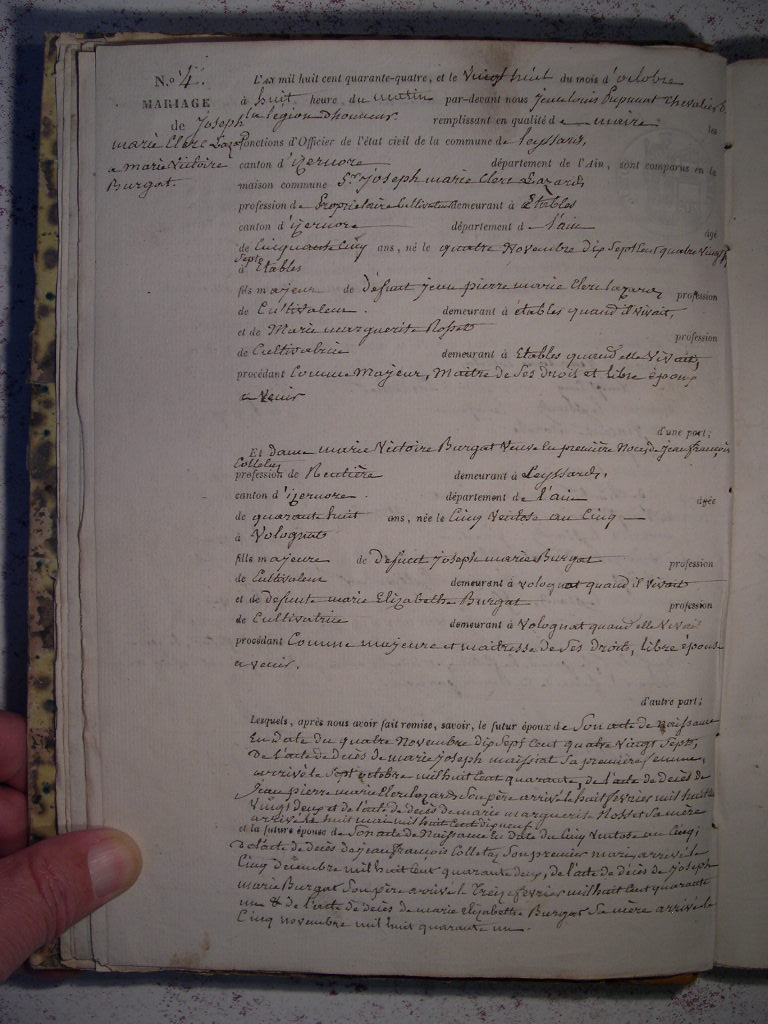 N.o 4.
MARIAGE
de Joseph
marie Clerc Lazard
a marie Victoire
Burgat.
L'AN mil huit cent quarante-quatre, et le vingt huit du mois d'octobre
à huit heure du matin par-devant nous jean louis chevalier d.
la légion d'honneur remplissant en qualité de maire les
fonctions d'Officier de l'état civil de la commune de Leyssard,
canton d'izernore département de l'Ain, sont comparus en la
maison commune Sr joseph marie Clerc Lazard,
profession de Propriétaire Cultivateur demeurant à Etables
canton d'izernore département de l'ain âgé
de Cinquante Cinq ans, né le quatre Novembre dix Sept Cent quatre vingt
Sept
à Etables
fils majeur de défunt jean pierre marie Clerc lazard, profession
de Cultivateur. demeurant à étables quand il vivait
et de Marie marguerite Rosset profession
de Cultivatrice demeurant à Etables quand elle Vivait,
procédant Comme Majeur, Maitre de Ses droits et libre époux
a venir
d'une part;
Et dame marie Victoire Burgat Veuve en première Noces, de jean françois
Collet
profession de Rentière demeurant à Leyssard,
canton d'izernore. département de l'ain âgée
de quarante huit ans, née le Cinq Ventose an Cinq
à Volognat
fille majeure de Defunt joseph marie Burgat profession
de Cultivateur demeurant à volognat quand il vivait
et de defunte marie Elizabeth Burgat profession
de Cultivatrice demeurant à Volognat quand elle Vivait
procédant Comme majeure et maitresse de Ses droits, libre épouse
a venir.
d'autre part;
Lesquels, après nous avoir fait remise, savoir, le futur époux de Son acte de Naissance
En date du quatre Novembre dix Sept Cent quatre Vingt Sept,
de l'acte de décès de marie joseph maissiat Sa première femme,
arrivé le Sept octobre mil huit Cent quarante, de l'acte de décès de
jean pierre marie Clerc lazard Son père arrivé le huit février mil huit Cent
Vingt deux et de l'acte de décès de marie marguerite Rosset Sa mère
arrivé le huit mai mil huit Cent dix neuf,
et la future épouse de Son acte de Naissance En date du Cinq Ventose an Cinq;
de l'acte de décès de jean françois Collet, Son premier mari, arrivé le
Cinq décembre mil huit Cent quarante deux, de l'acte de décès de joseph
marie Burgat Son père arrivé le Treize février mil huit Cent quarante
un & de l'acte de décès de marie Elizabeth Burgat Sa mère arrivé le
Cinq novembre mil huit quarante un.